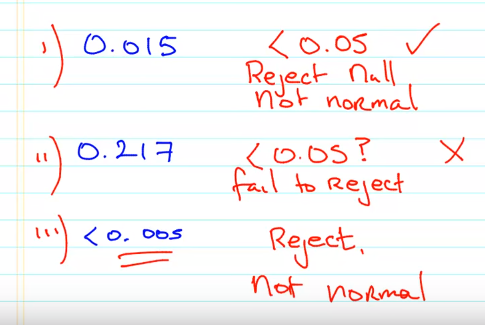 i) 0.015 < 0.05 ✓
Reject Null
Not normal
ii) 0.217 < 0.05? X
fail to Reject
iii) < 0.005 Reject,
Not normal